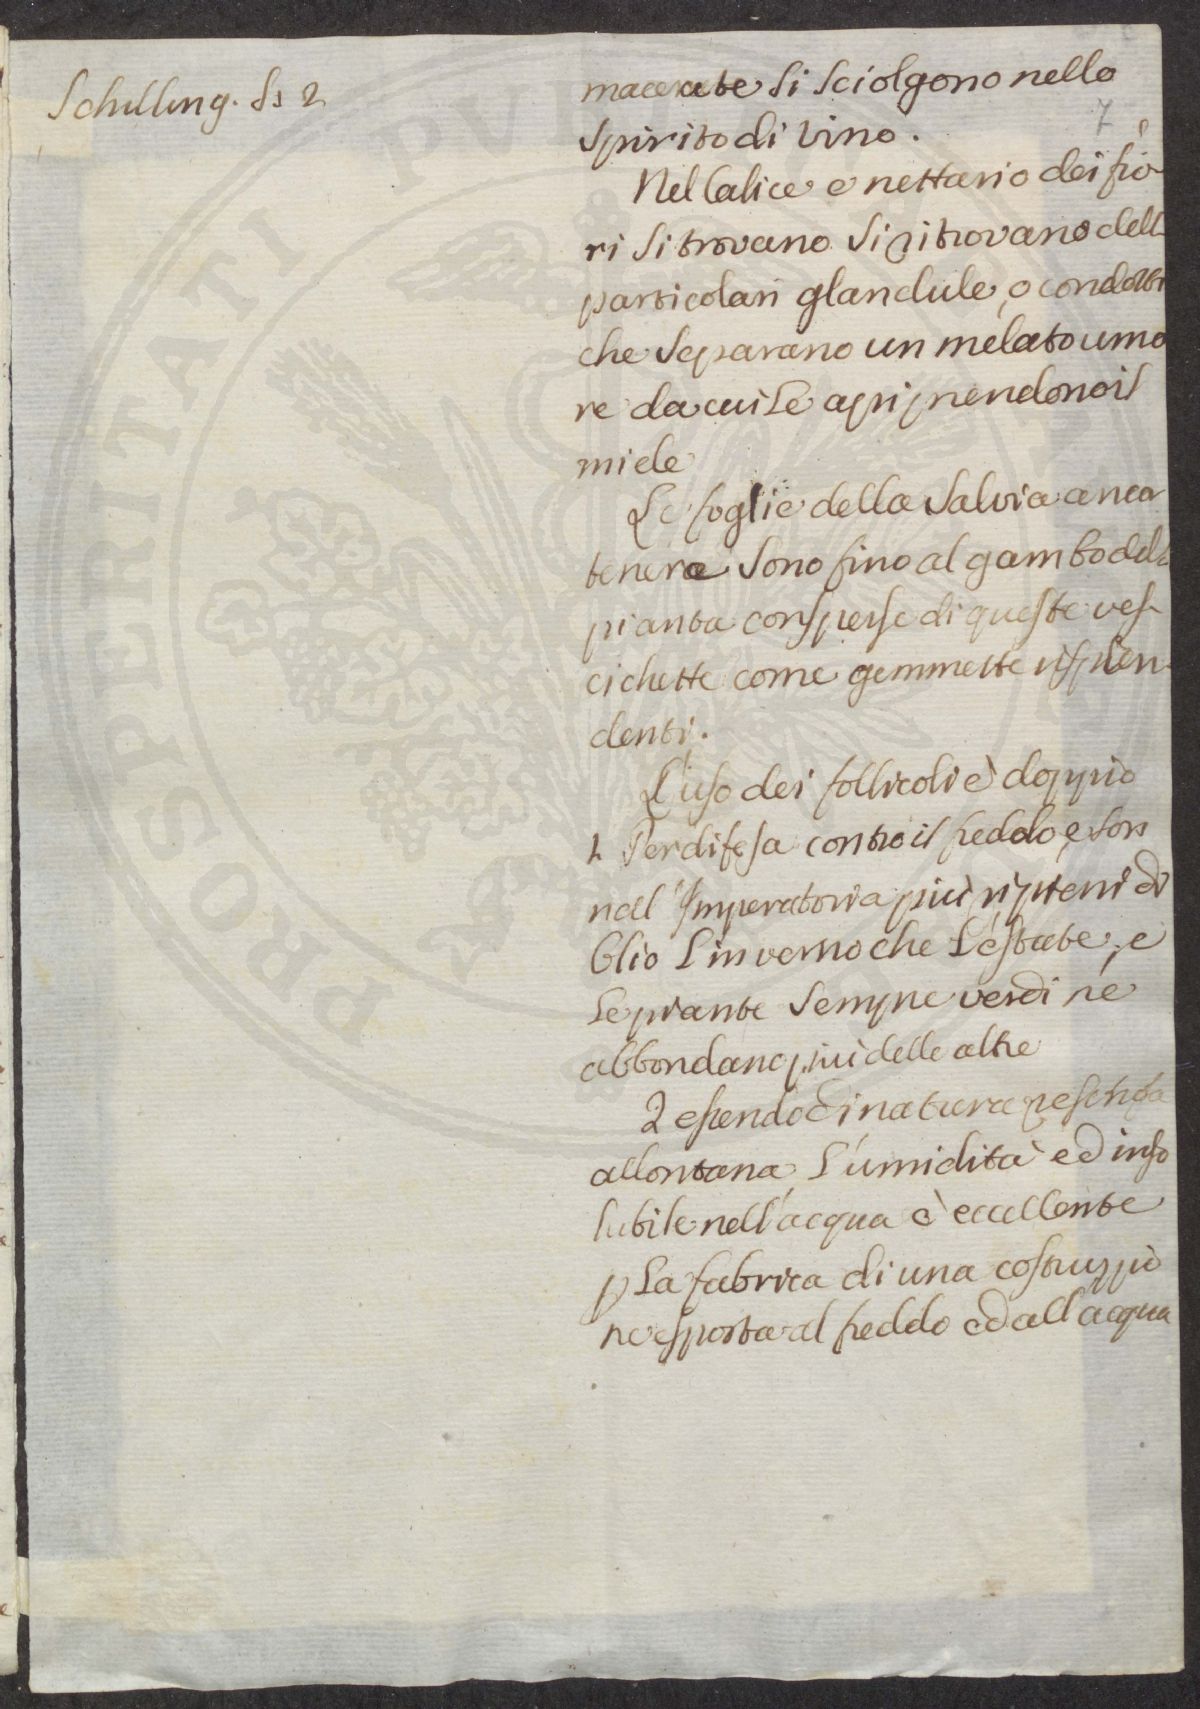 Schilling. §§ 2
7
macerate si sciolgono nello
spirito di vino.
Nel Calice e nettario dei fio
ri si trovano si ritrovano dell
particolari glandule, o condotti
che separano un melato umo
re da cui le api prendono il
miele
Le foglie della Salvia ancor
tenera sono fino al gambo della
pianta consperse di queste ves
cichette come gemmette risplen
denti.
L'uso dei follicoli è doppio
1 Per difesa contro il freddo, e son
nell'Imperatoria più ripieni di
Olio l'inverno che l'estate, e
le piante sempre verdi ne
abbondano più delle altre
2 essendo di natura resinosa
allontana l'umidità ed inso
lubile nell'acqua è eccellente
p la fabrica di una costruzzio
ne esposta al freddo ed all'acqua
PROSPERITATI